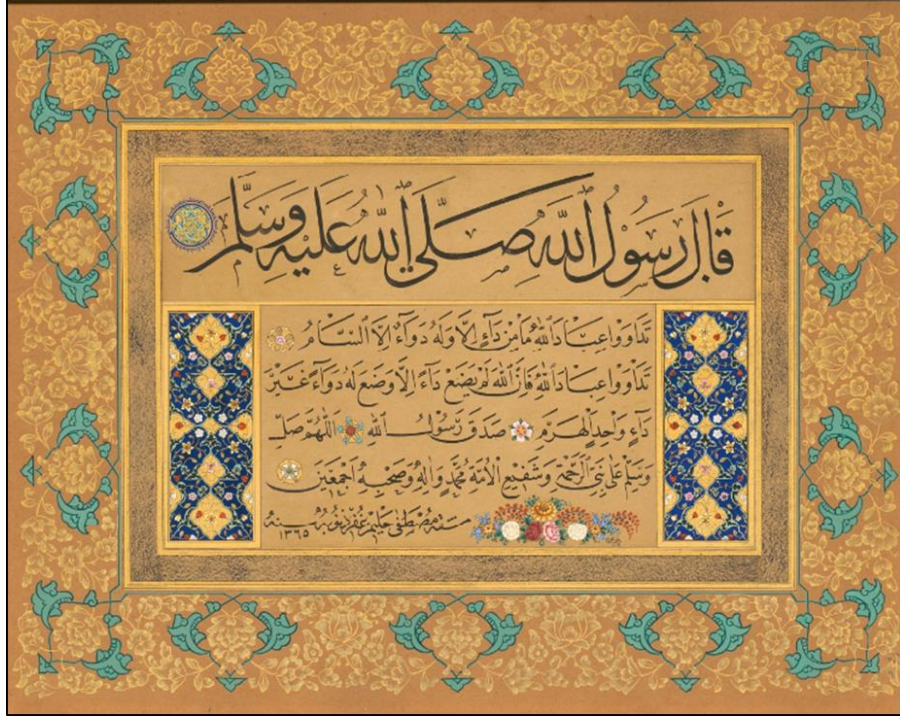 قَالَ رَسُولُ اللّٰهِ صَلَّى اللّٰهُ عَلَيْهِ وَسَلَّمَ
تَدَاوَوْا عِبَادَ اللّٰهِ مَا مِنْ دَاءٍ اِلَّا وَلَهُ دَوَاءٌ اِلَّا السَّامُ
تَدَاوَوْا عِبَادَ اللّٰهِ فَاِنَّ اللّٰهَ لَمْ يَضَعْ دَاءً اِلَّا وَضَعَ لَهُ دَوَاءً غَيْرَ
دَاءٍ وَاحِدٍ الْهَرَمِ صَدَقَ رَسُولُ اللّٰهِ اَللّٰهُمَّ صَلِّ
وَسَلِّمْ عَلَى نَبِيِّ الرَّحْمَةِ وَشَفِيعِ الْاُمَّةِ مُحَمَّدٍ وَاٰلِهِ وَصَحْبِهِ اَجْمَعِينَ
مصطفى حليم غفر ذنوبه سنة
١٣٦٥